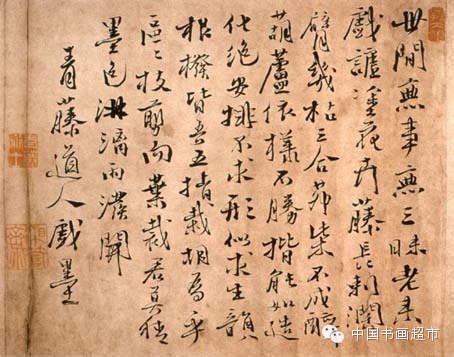 世間無事無三昧老來
戲謔塗花卉藤長刺濶
臂幾枯三合茅柴不成醉
葫蘆依樣不勝揩能如造
化絶安排不求形似求生韻
根撥皆吾五指栽胡為乎
區〻枝剪而葉裁君莫猜
墨色淋漓雨潑開
青藤道人戲墨
中国书画超市